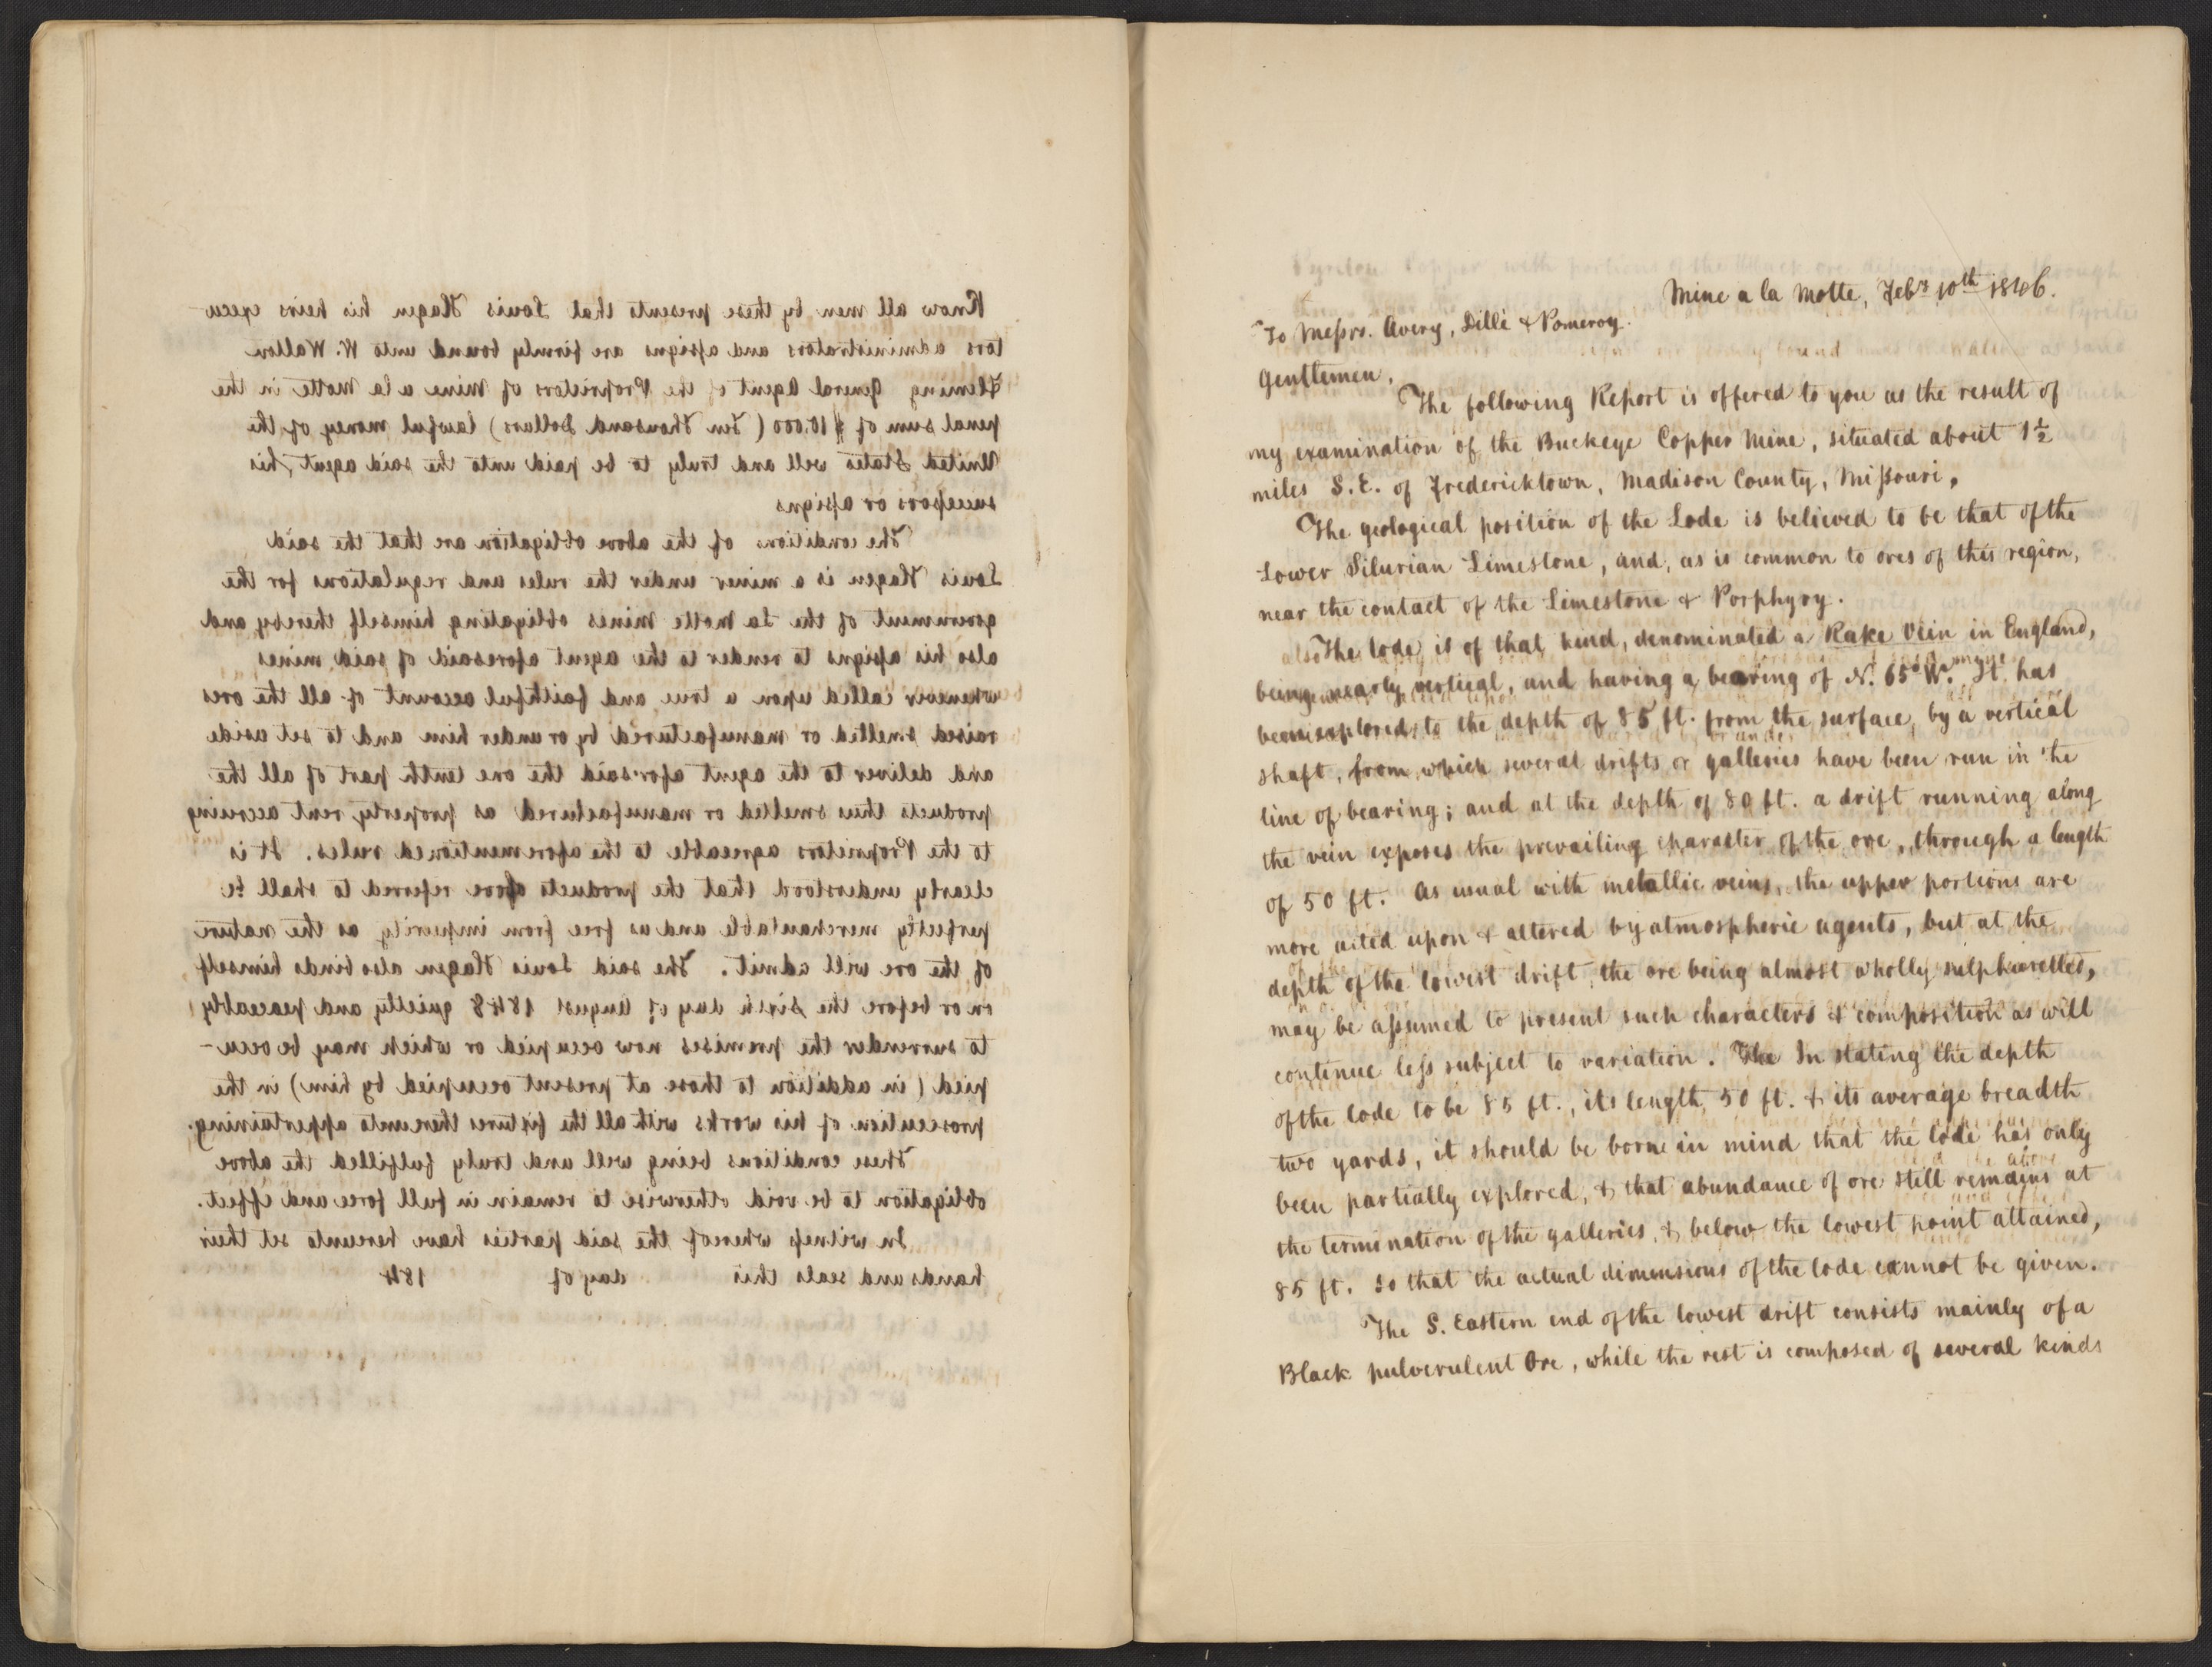 Know all men by these presents that Louis Hagen his heirs execu-
tors administrators and assigns are firmly bound unto W. Walton
Fleming General Agent of the Proprietors of Mine a la Motte in the
penal sum of $10.000 (Ten Thousand Dollars) lawful money of the
United States well and truly to be paid unto the said agent, his
successors or assigns
The conditions of the above obligation are that the said
Louis Hagen is a miner under the rules and regulations for the
government of the La Motte mines obligating himself thereby and
also his assigns to render to the agent aforesaid of said mines
whenever called upon a true and faithful account of all the ores
raised smelted or manufactured by or under him and to set aside
and deliver to the agent aforesaid the one tenth part of all the
products thus smelted or manufactured as property rent accruing
to the Proprietors agreeable to the aforementioned rules. It is
clearly understood that the products above referred to shall be
perfectly merchantable and as free from impurity as the nature
of the ore will admit. The said Louis Hagen also binds himself
on or before the sixth day of August 1848 quietly and peaceably
to surrender the premises now occupied or which may be occu-
pied (in addition to those at present occupied by him) in the
prosecution of his works with all the fixtures thereunto appertaining.
These conditions being well and truly fulfilled the above
obligation to be void otherwise to remain in full force and effect.
In witness whereof the said parties have hereunto set their
hands and seals this day of 184
Mine a la Motte, Feby. 10th 1846.
To Messrs. Avery, Dillé & Pomeroy.
Gentlemen,
The following Report is offered to you as the result of
my examination of the Buckeye Copper Mine, situated about 1½
miles S.E. of Fredericktown, Madison County, Missouri.
The geological position of the Lode is believed to be that of the
Lower Silurian Limestone, and, as is common to ores of this region,
near the contact of the Limestone & Porphyry.
The lode is of that kind, denominated a Rake Vein in England,
being nearly vertical, and having a bearing of N. 65° W. It has
been explored to the depth of 85 ft. from the surface, by a vertical
shaft, from which several drifts or galleries have been run in the
line of bearing; and at the depth of 80 ft. a drift running along
the vein exposes the prevailing character of the ore, through a length
of 50 ft. As usual with metallic veins, the upper portions are
more acted upon & altered by atmospheric agents, but at the
depth of the lowest drift, the ore being almost wholly sulphuretted,
may be assumed to present such characters & composition as will
continue less subject to variation. The In stating the depth
of the lode to be 85 ft., its length, 50 ft. & its average breadth
two yards, it should be borne in mind that the lode has only
been partially explored, & that abundance of ore still remains at
the termination of the galleries, & below the lowest point attained,
85 ft. so that the actual dimensions of the lode cannot be given.
The S. Eastern end of the lowest drift consists mainly of a
Black pulverulent Ore, while the rest is composed of several kinds